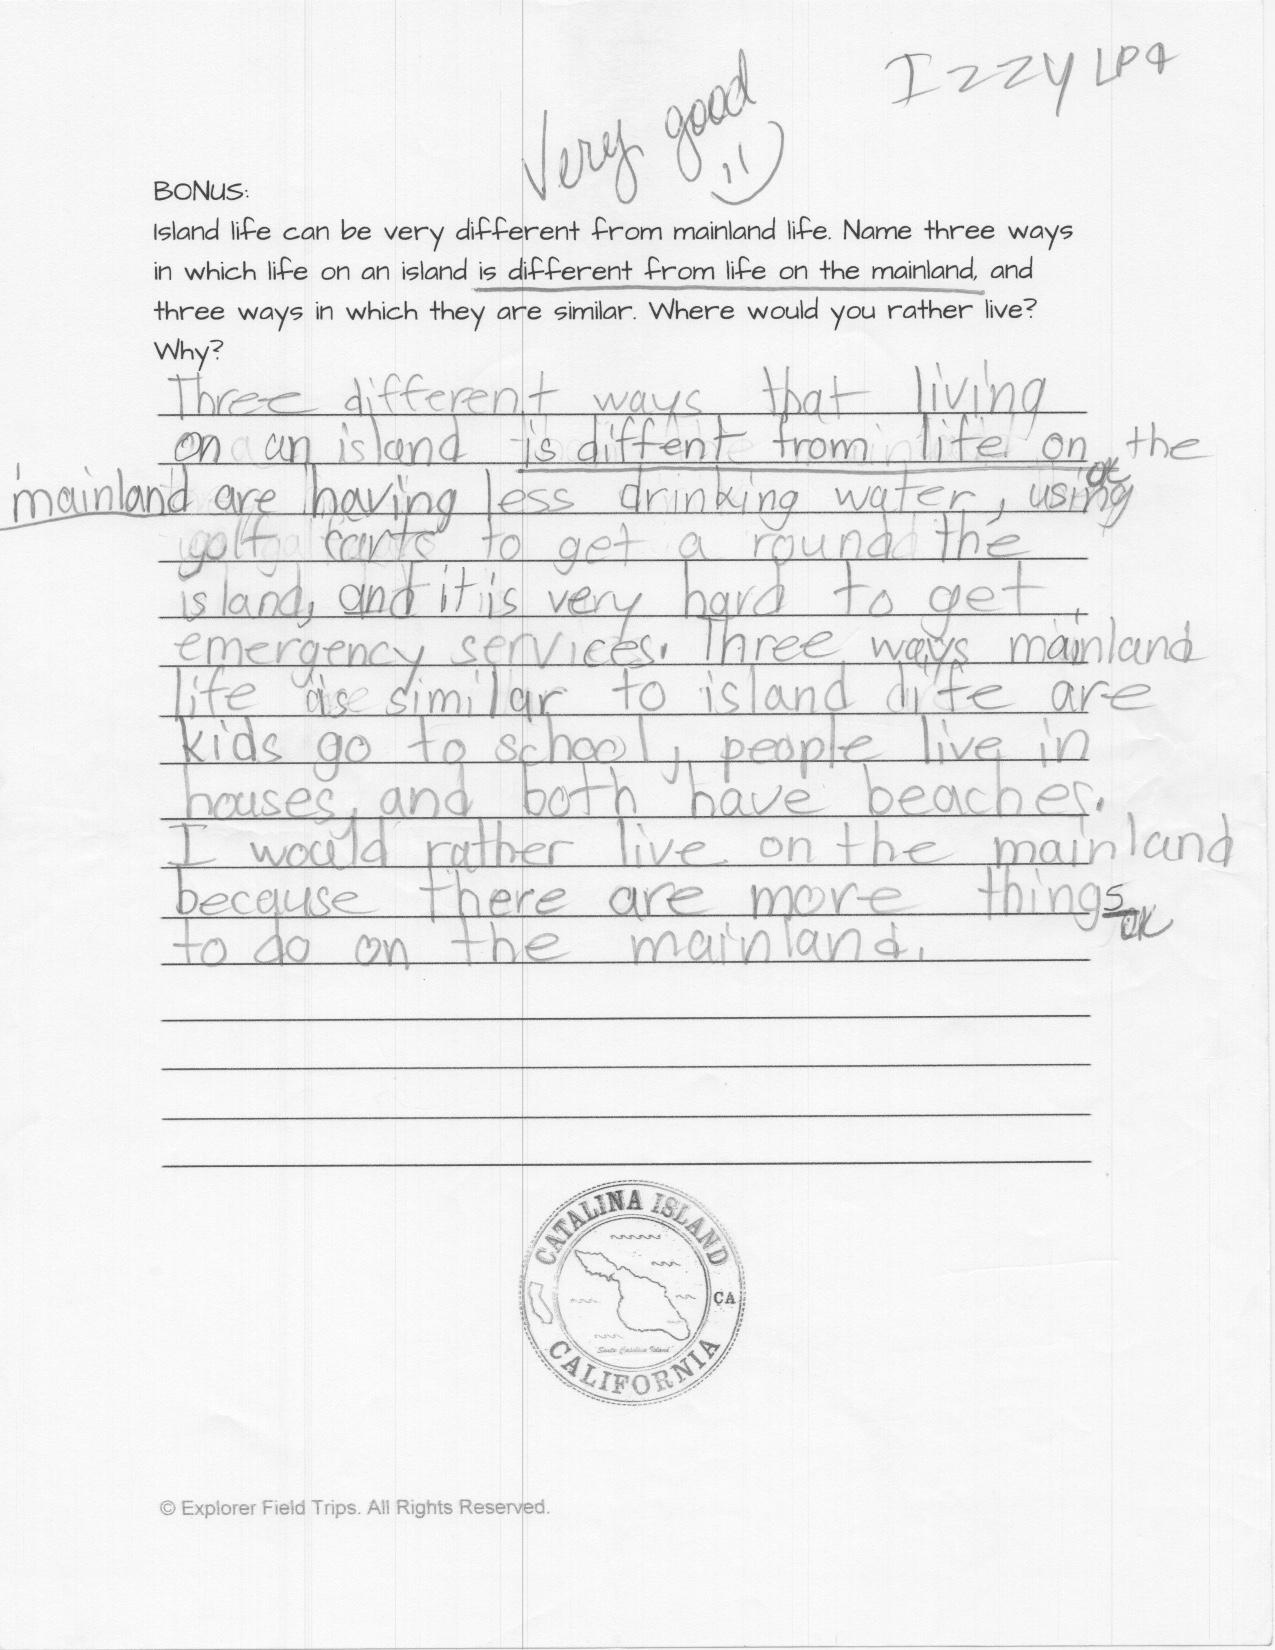 Izzy LP4
Very good
BONUS:
Island life can be very different from mainland life. Name three ways
in which life on an island is different from life on the mainland, and
three ways in which they are similar. Where would you rather live?
Why?
Three different ways that living
on an island is diffent from life on the
mainland are having less drinking water, using
golf carts to get a round the
island, and it is very hard to get
emergency services. Three ways mainland
life is similar to island life are
kids go to school, people live in
houses, and both have beaches.
I would rather live on the mainland
because there are more things
to do on the mainland.
CATALINA ISLAND
CA
Santa Catalina Island
CALIFORNIA
© Explorer Field Trips. All Rights Reserved.